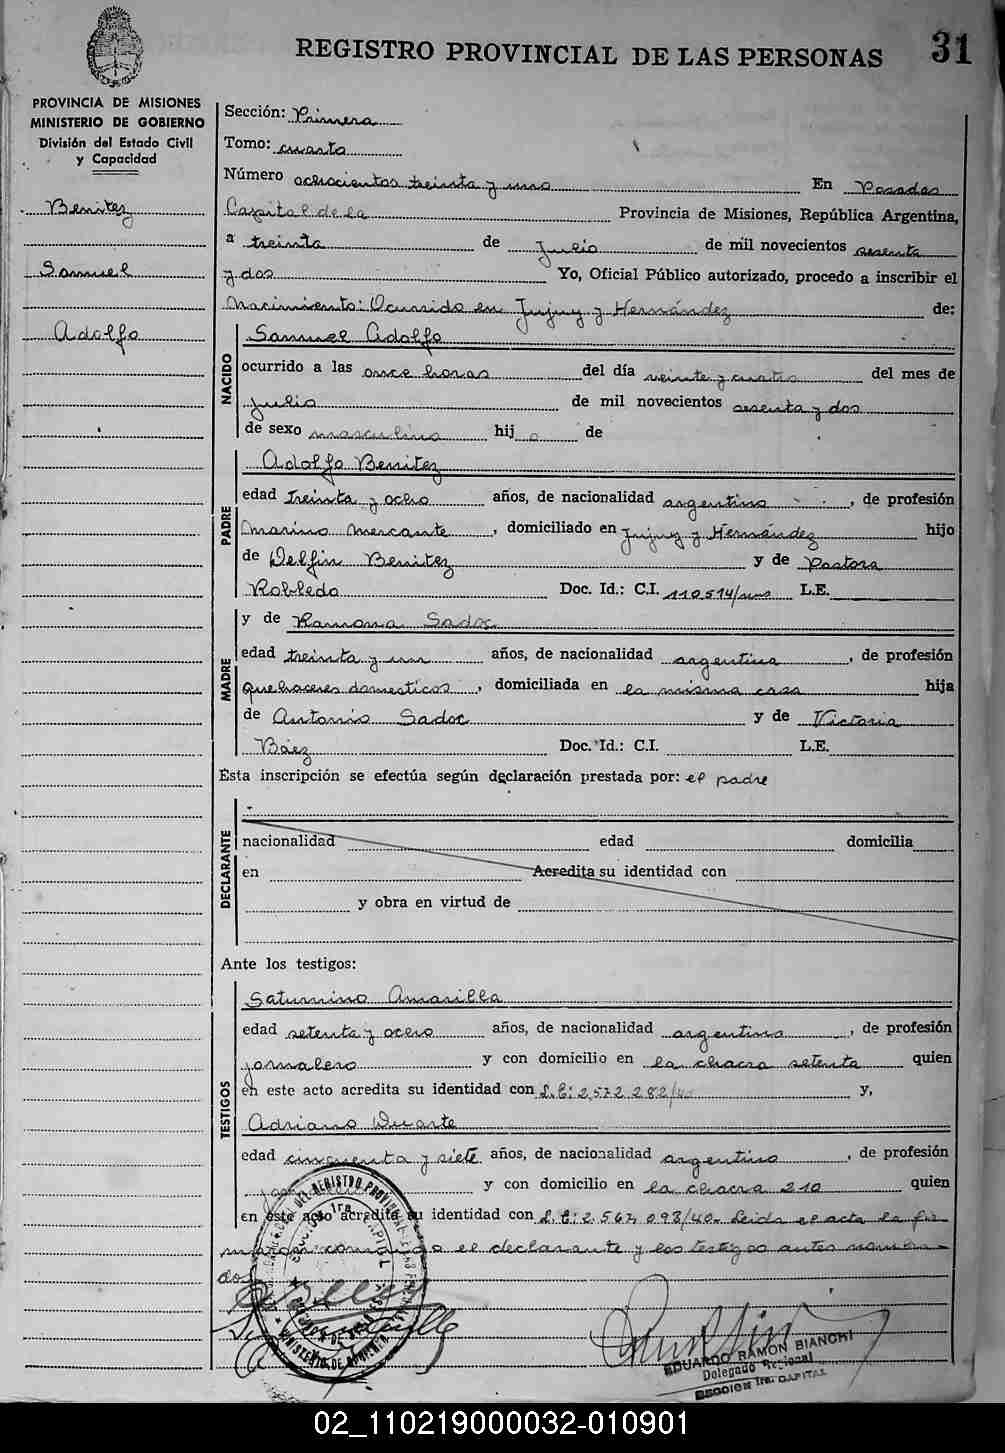 REGISTRO PROVINCIAL DE LAS PERSONAS 31
PROVINCIA DE MISIONES
MINISTERIO DE GOBIERNO
División del Estado Civil
y Capacidad
Benitez
Samuel
Adolfo
Sección: Primera
Tomo: cuarto
Número ochocientos treinta y uno En Posadas
Capital de la Provincia de Misiones, República Argentina,
a treinta de Julio de mil novecientos sesenta
y dos Yo, Oficial Público autorizado, procedo a inscribir el
Nacimiento: Ocurrido en Jujuy y Hernández de:
NACIDO
Samuel Adolfo
ocurrido a las once horas del día veinte y cuatro del mes de
Julio de mil novecientos sesenta y dos
de sexo masculino hij o de
PADRE
Adolfo Benitez
edad treinta y ocho años, de nacionalidad argentino, de profesión
Marino mercante, domiciliado en Jujuy y Hernández hijo
de Delfin Benitez y de Pastora
Robledo Doc. Id.: C.I. L.E.
MADRE
y de Ramona Sadoc
edad treinta y un años, de nacionalidad argentina, de profesión
quehaceres domesticos, domiciliada en la misma casa hija
de Antonio Sadoc y de Victoria
Báez Doc. Id.: C.I. L.E.
Esta inscripción se efectúa según declaración prestada por: el padre
DECLARANTE
nacionalidad edad domicilia
en Acredita su identidad con
y obra en virtud de
Ante los testigos:
TESTIGOS
Saturnino Amarilla
edad setenta y ocho años, de nacionalidad argentino, de profesión
jornalero y con domicilio en la chacra setenta quien
en este acto acredita su identidad con L.E: 2.572.282/40 y,
Adriano Duarte
edad cincuenta y siete años, de nacionalidad argentino, de profesión
y con domicilio en la chacra 210 quien
en este acto acredita su identidad con L.E: 2.567.093/40. Leida el acta la fir
maron conmigo el declarante y los testigos antes nombra-
dos
EDUARDO RAMON BIANCHI
Delegado Regional
SECCION 1ra. CAPITAL
02_110219000032-010901